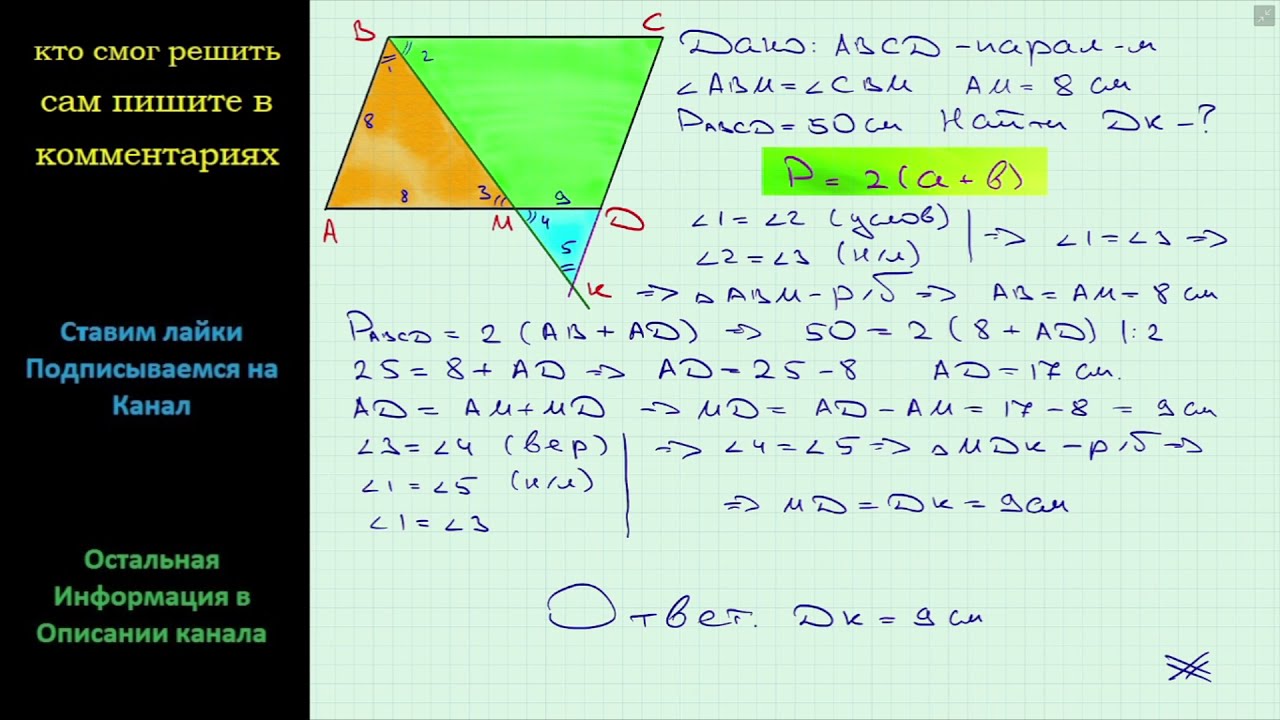 кто смог решить
сам пишите в
комментариях
Ставим лайки
Подписываемся на
Канал
Остальная
Информация в
Описании канала
B
C
1
2
8
8
3
9
A
M
4
D
5
K
Дано: ABCD - парал-м
∠ABM = ∠CBM AM = 8 см
PABCD = 50 см Найти DK - ?
P = 2(a + b)
∠1 = ∠2 (услов)
∠2 = ∠3 (н/л)
=> ∠1 = ∠3 =>
=> △ABM - р/б => AB = AM = 8 см
PABCD = 2 (AB + AD) => 50 = 2 (8 + AD) |: 2
25 = 8 + AD => AD = 25 - 8 AD = 17 см.
AD = AM + MD => MD = AD - AM = 17 - 8 = 9 см
∠3 = ∠4 (вер)
∠1 = ∠5 (н/л)
∠1 = ∠3
=> ∠4 = ∠5 => △MDK - р/б =>
=> MD = DK = 9 см
Ответ. DK = 9 см